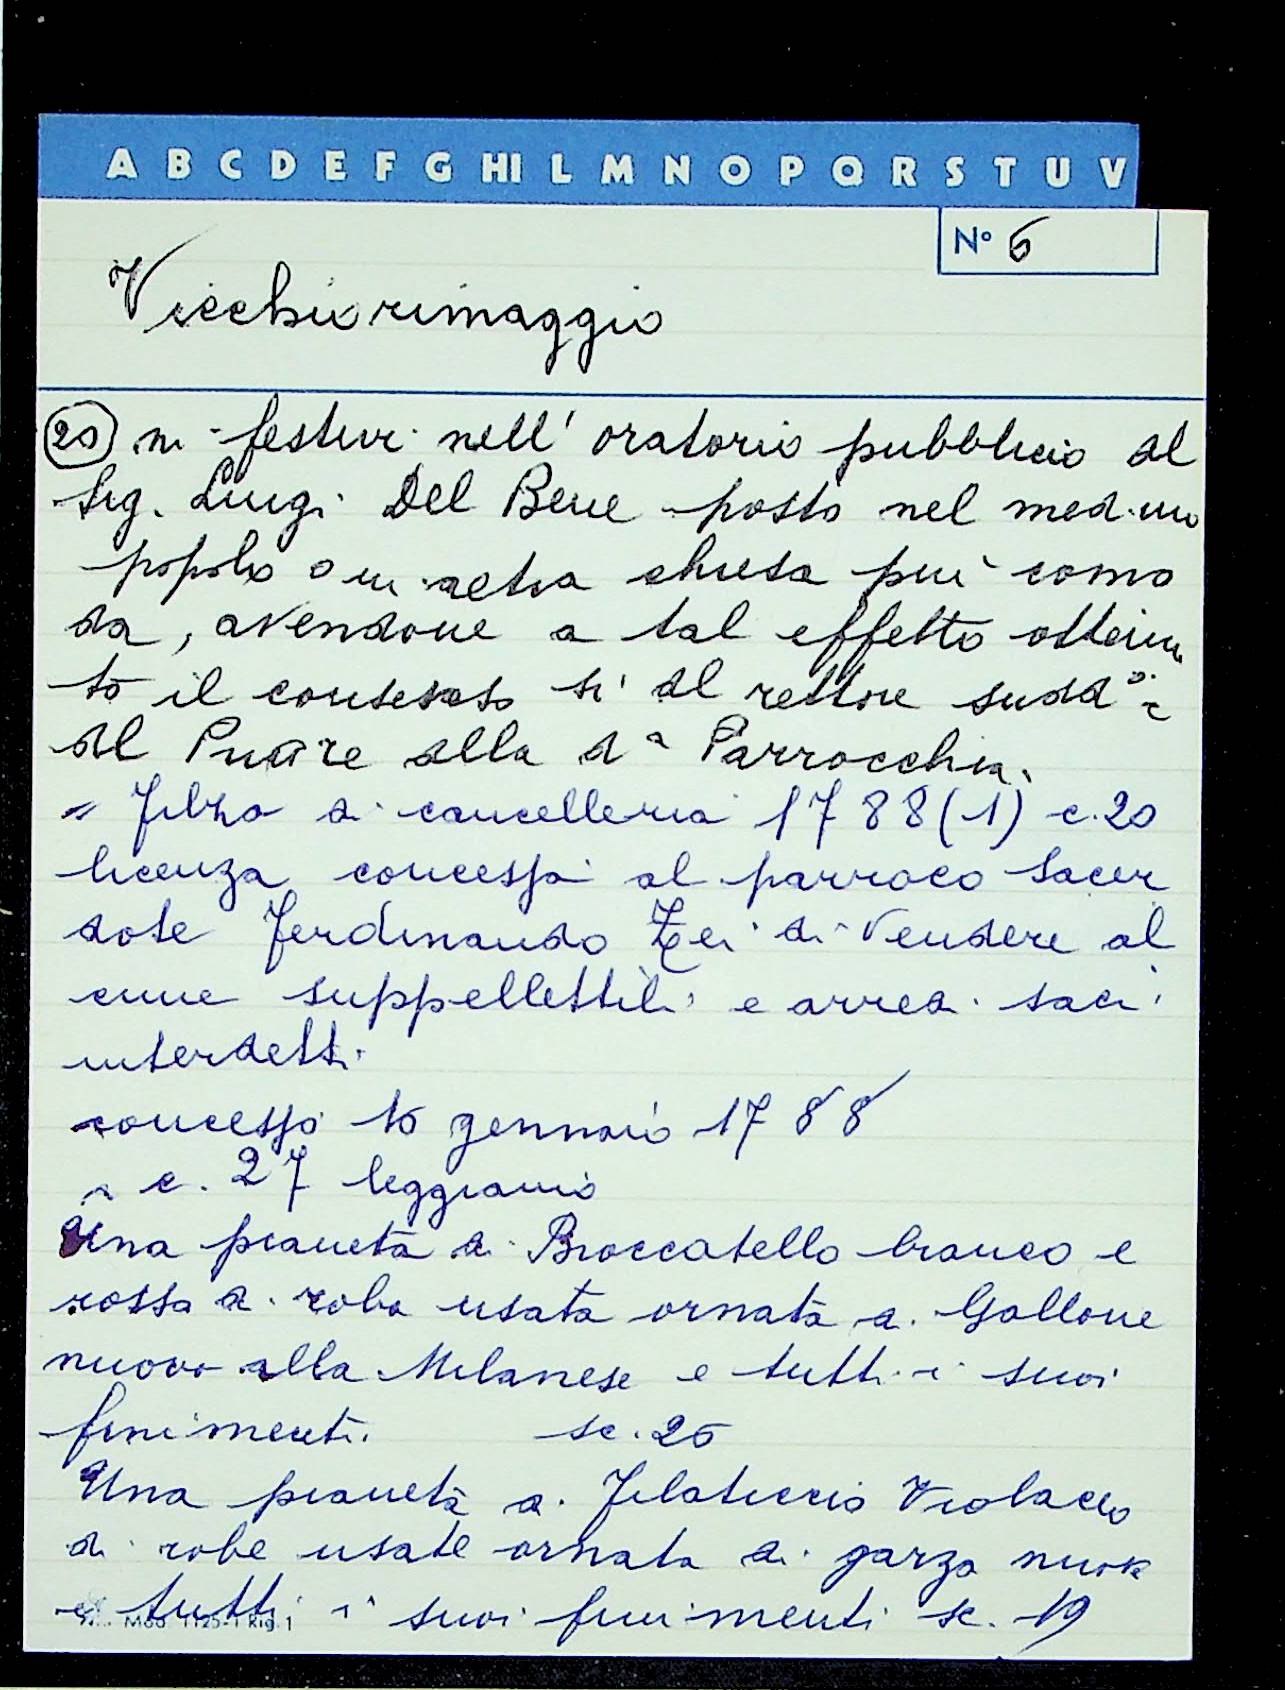 A B C D E F G HI L M N O P Q R S T U V
N° 6
Vicchiorimaggio
20 ni festivi nell' oratorio pubblico del
Sig. Luigi Del Bene posto nel med.mo
popolo o in altra chiesa più como
da, avendone a tal effetto ottenu
to il consenso si del rettore sudd° e
del Priore della d.a Parrocchia.
= Filza di cancelleria 1788 (1) c. 20
licenza concessa al parroco Sacer
dote Ferdinando Zei di vendere al
cune suppellettili e arredi sacri
interdetti
concesso 16 gennaio 1788
a c. 27 leggiamo
Una pianeta di Broccatello bianco e
rosso di roba usata ornata di Gallone
nuovo alla Milanese e tutti i suoi
finimenti. sc. 26
Una pianeta di Filaticcio Violaceo
di robe usate ornata di garza
e tutti i suoi finimenti sc. 19
Mod. 1125-1 Rig. 1